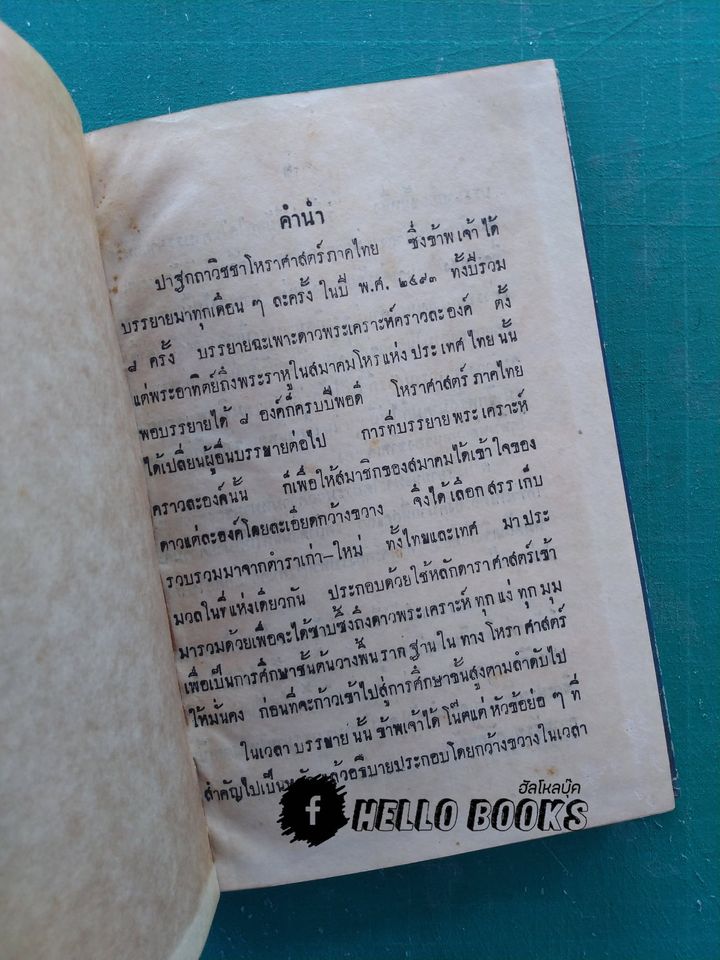 คำนำ
ปาฐกถาวิชชาโหราศาสตร์ภาคไทย ซึ่งข้าพเจ้าได้
บรรยายมาทุกเดือน ๆ ละครั้ง ในปี พ.ศ. ๒๔๙๓ ทั้งปีรวม
๘ ครั้ง บรรยายฉะเพาะดาวพระเคราะห์คราวละองค์ ตั้ง
แต่พระอาทิตย์ถึงพระราหูในสมาคมโหรแห่งประเทศไทย นั้น
พอบรรยายได้ ๘ องค์ก็ครบปีพอดี โหราศาสตร์ภาคไทย
ได้เปลี่ยนผู้อื่นบรรยายต่อไป การที่บรรยายพระเคราะห์
คราวละองค์นั้น ก็เพื่อให้สมาชิกของสมาคมได้เข้าใจของ
ดาวแต่ละองค์โดยละเอียดกว้างขวาง จึงได้เลือกสรรเก็บ
รวบรวมมาจากตำราเก่า–ใหม่ ทั้งไทยและเทศ มาประ
มวลในที่แห่งเดียวกัน ประกอบด้วยใช้หลักดาราศาสตร์เข้า
มารวมด้วยเพื่อจะได้ซาบซึ้งถึงดาวพระเคราะห์ ทุก แง่ ทุก มุม
เพื่อเป็นการศึกษาชั้นต้นวางพื้นรากฐานใน ทาง โหราศาสตร์
ให้มั่นคง ก่อนที่จะก้าวเข้าไปสู่การศึกษาชั้นสูงตามลำดับไป
ในเวลา บรรยาย นั้น ข้าพเจ้าได้ โน๊ตแต่ หัวข้อย่อ ๆ ที่
สำคัญไปเป็น แล้วอธิบายประกอบโดยกว้างขวางในเวลา
ฮัลโหลบุ๊ค
HELLO BOOKS